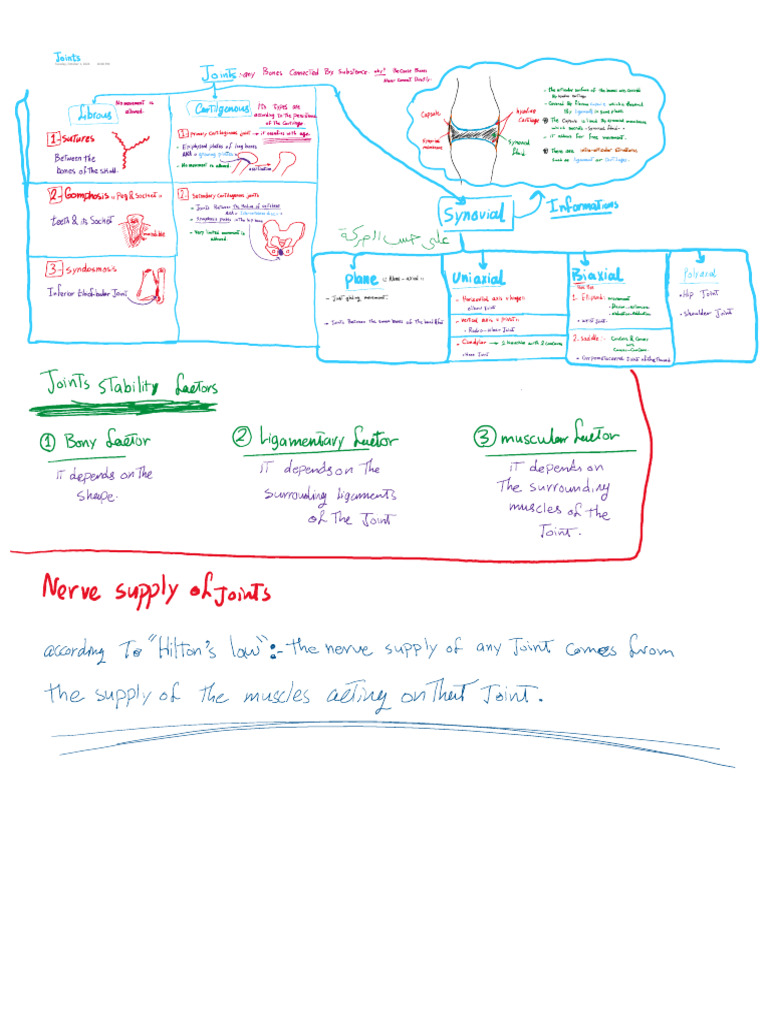 Joints
Joints: any Bones Connected By Substance why? Because Bones
Never Connect Directly
Fibrous
No movement is
allowed.
1- Sutures
Between the
bones of the skull.
2- Gomphosis "Peg & Socket"
teeth & its Socket
3- Syndesmoss
Inferior tibiofibular Joint
Cartilagenous
Its Types are
according to the persistance
of the Cartilage
1 Primary Cartilagenous joint → it ossifies with age.
Epiphyseal plates of long bones
AKA "growing plates"
No movement is allowed
ossification
2 Secondary Cartilagenous joints
Joints Between the bodies of vertebrae
AKA "intervertebral discs"
Symphysis pubis in the hip bone
Very limited movement is
allowed
Capsule
Synovial
membrane
hyaline
Cartilage
Synovial
fluid
The articular surface of the bones are covered
By hyaline cartilage
Covered By Fibrous capsule which is thickened
by ligaments in some places.
The Capsule is lined By synovial membrane
which secrets "synovial fluid"
it allows for free movement.
There are intra-articular structures
such as ligament or cartilage.
Synovial
Informations
على حسب الحركة
Plane
Joint gliding movement.
Joints Between the small bones of the hand & foot
Uniaxial
Horizontal axis → hinges
elbow joint
Vertical axis → pivot
Radio-ulnar Joint
Condylar → 2 Concave with 2 Condyles
Knee Joint
Biaxial
1. Ellipsoid: movement
Flexion-extension
abduction-adduction
wrist joint.
2. saddle:- Concave & Convex
with
Convex-Concave
Carpometacarpal Joint of the thumb
Polyaxial
Hip Joint
Shoulder Joint
Joints stability factors
① Bony factor
it depends on the
shape.
② Ligamentary factor
it depends on the
surrounding ligaments
of the Joint
③ muscular factor
it depends on
the surrounding
muscles of the
Joint.
Nerve supply of Joints
according To "Hilton's law":- the nerve supply of any Joint comes from
the supply of the muscles acting on that Joint.